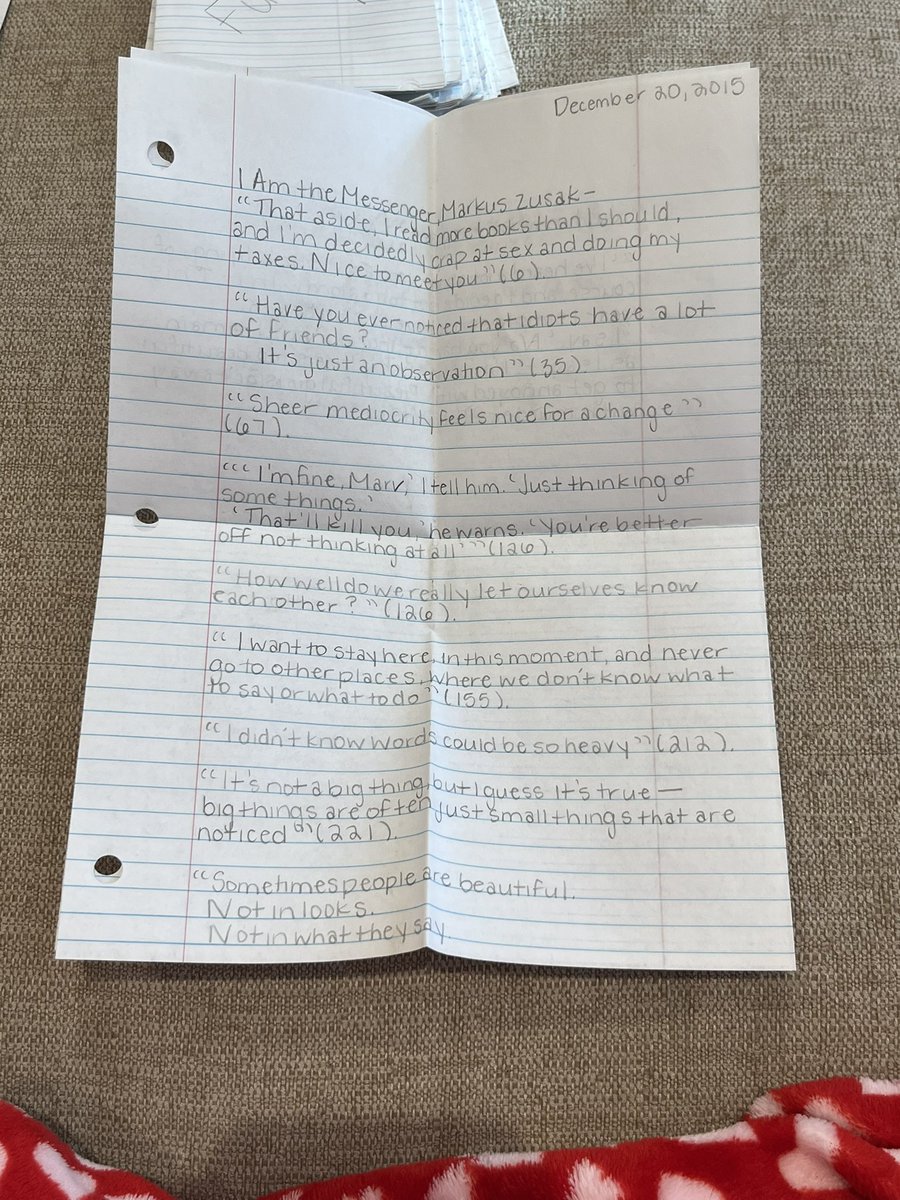 December 20, 2015
I Am the Messenger, Markus Zusak-
“That aside, I read more books than I should,
and I'm decidedly crap at sex and doing my
taxes. Nice to meet you” (6).
“Have you ever noticed that idiots have a lot
of friends?
It's just an observation” (35).
“Sheer mediocrity feels nice for a change”
(67).
“‘I'm fine, Marv,’ I tell him. ‘Just thinking of
some things.’
‘That'll kill you,’ he warns. ‘You're better
off not thinking at all’” (126).
“How well do we really let ourselves know
each other?” (126).
“I want to stay here, in this moment, and never
go to other places, where we don't know what
to say or what to do” (155).
“I didn't know words could be so heavy” (212).
“It's not a big thing, but I guess it's true—
big things are often just small things that are
noticed” (221).
“Sometimes people are beautiful.
Not in looks.
Not in what they say.